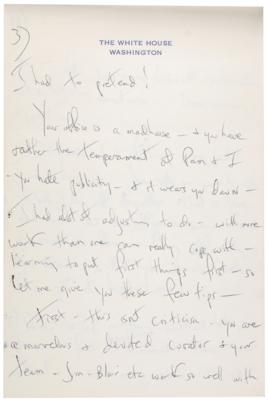 3)
THE WHITE HOUSE
WASHINGTON
I had to pretend!
Your office is a madhouse – & you have
rather the temperament of Pam & I
– You hate publicity – & it wears you down –
I had a lot of adjusting to do – with more
work than one can really cope with –
learning to put first things first – so
let me give you these few tips –
First – this isn't criticism – you are
a marvelous & devoted curator & your
team – Jim – Blair etc work so well with